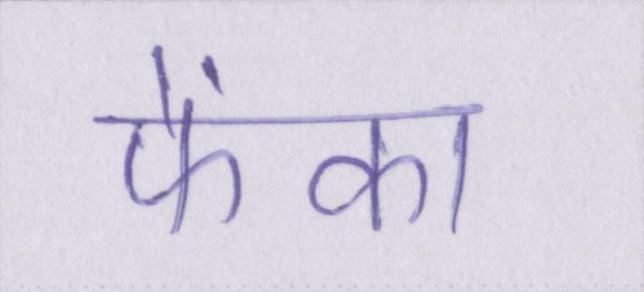 फैंका